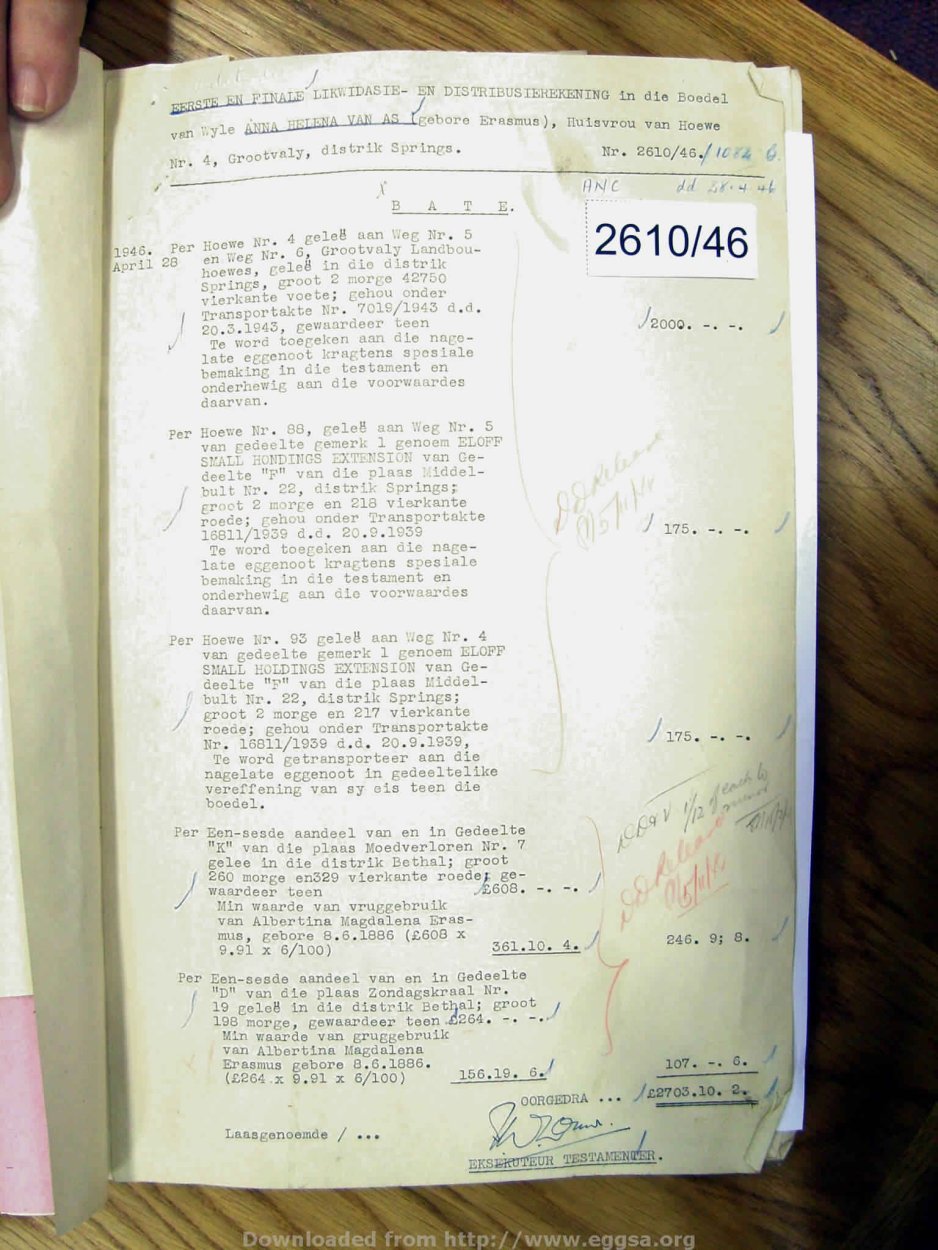 EERSTE EN FINALE LIKWIDASIE- EN DISTRIBUSIEREKENING in die Boedel
van Wyle ANNA HELENA VAN AS (gebore Erasmus), Huisvrou van Hoewe
Nr. 4, Grootvaly, distrik Springs.
Nr. 2610/46.
ANC dd 28.4.46
B A T E.
2610/46
1946.
April 28
Per Hoewe Nr. 4 geleë aan Weg Nr. 5
en Weg Nr. 6, Grootvaly Landbou-
hoewes, geleë in die distrik
Springs, groot 2 morge 42750
vierkante voete; gehou onder
Transportakte Nr. 7019/1943 d.d.
20.3.1943, gewaardeer teen 2000. -. -.
Te word toegeken aan die nage-
late eggenoot kragtens spesiale
bemaking in die testament en
onderhewig aan die voorwaardes
daarvan.
Per Hoewe Nr. 88, geleë aan Weg Nr. 5
van gedeelte gemerk 1 genoem ELOFF
SMALL HONDINGS EXTENSION van Ge-
deelte "F" van die plaas Middel-
bult Nr. 22, distrik Springs;
groot 2 morge en 218 vierkante
roede; gehou onder Transportakte
16811/1939 d.d. 20.9.1939 175. -. -.
Te word toegeken aan die nage-
late eggenoot kragtens spesiale
bemaking in die testament en
onderhewig aan die voorwaardes
daarvan.
Per Hoewe Nr. 93 geleë aan Weg Nr. 4
van gedeelte gemerk 1 genoem ELOFF
SMALL HOLDINGS EXTENSION van Ge-
deelte "F" van die plaas Middel-
bult Nr. 22, distrik Springs;
groot 2 morge en 217 vierkante
roede; gehou onder Transportakte
Nr. 16811/1939 d.d. 20.9.1939, 175. -. -.
Te word getransporteer aan die
nagelate eggenoot in gedeeltelike
vereffening van sy eis teen die
boedel.
Per Een-sesde aandeel van en in Gedeelte
"K" van die plaas Moedverloren Nr. 7
gelee in die distrik Bethal; groot
260 morge en329 vierkante roede; ge-
waardeer teen £608. -. -.
Min waarde van vruggebruik
van Albertina Magdalena Eras-
mus, gebore 8.6.1886 (£608 x
9.91 x 6/100) 361.10. 4. 246. 9; 8.
Per Een-sesde aandeel van en in Gedeelte
"D" van die plaas Zondagskraal Nr.
19 geleë in die distrik Bethal; groot
198 morge, gewaardeer teen £264. -. -.
Min waarde van gruggebruik
van Albertina Magdalena
Erasmus gebore 8.6.1886.
(£264 x 9.91 x 6/100) 156.19. 6. 107. -. 6.
OORGEDRA ... £2703.10. 2.
Laasgenoemde / ...
EKSEKUTEUR TESTAMENTER.
Downloaded from http://www.eggsa.org